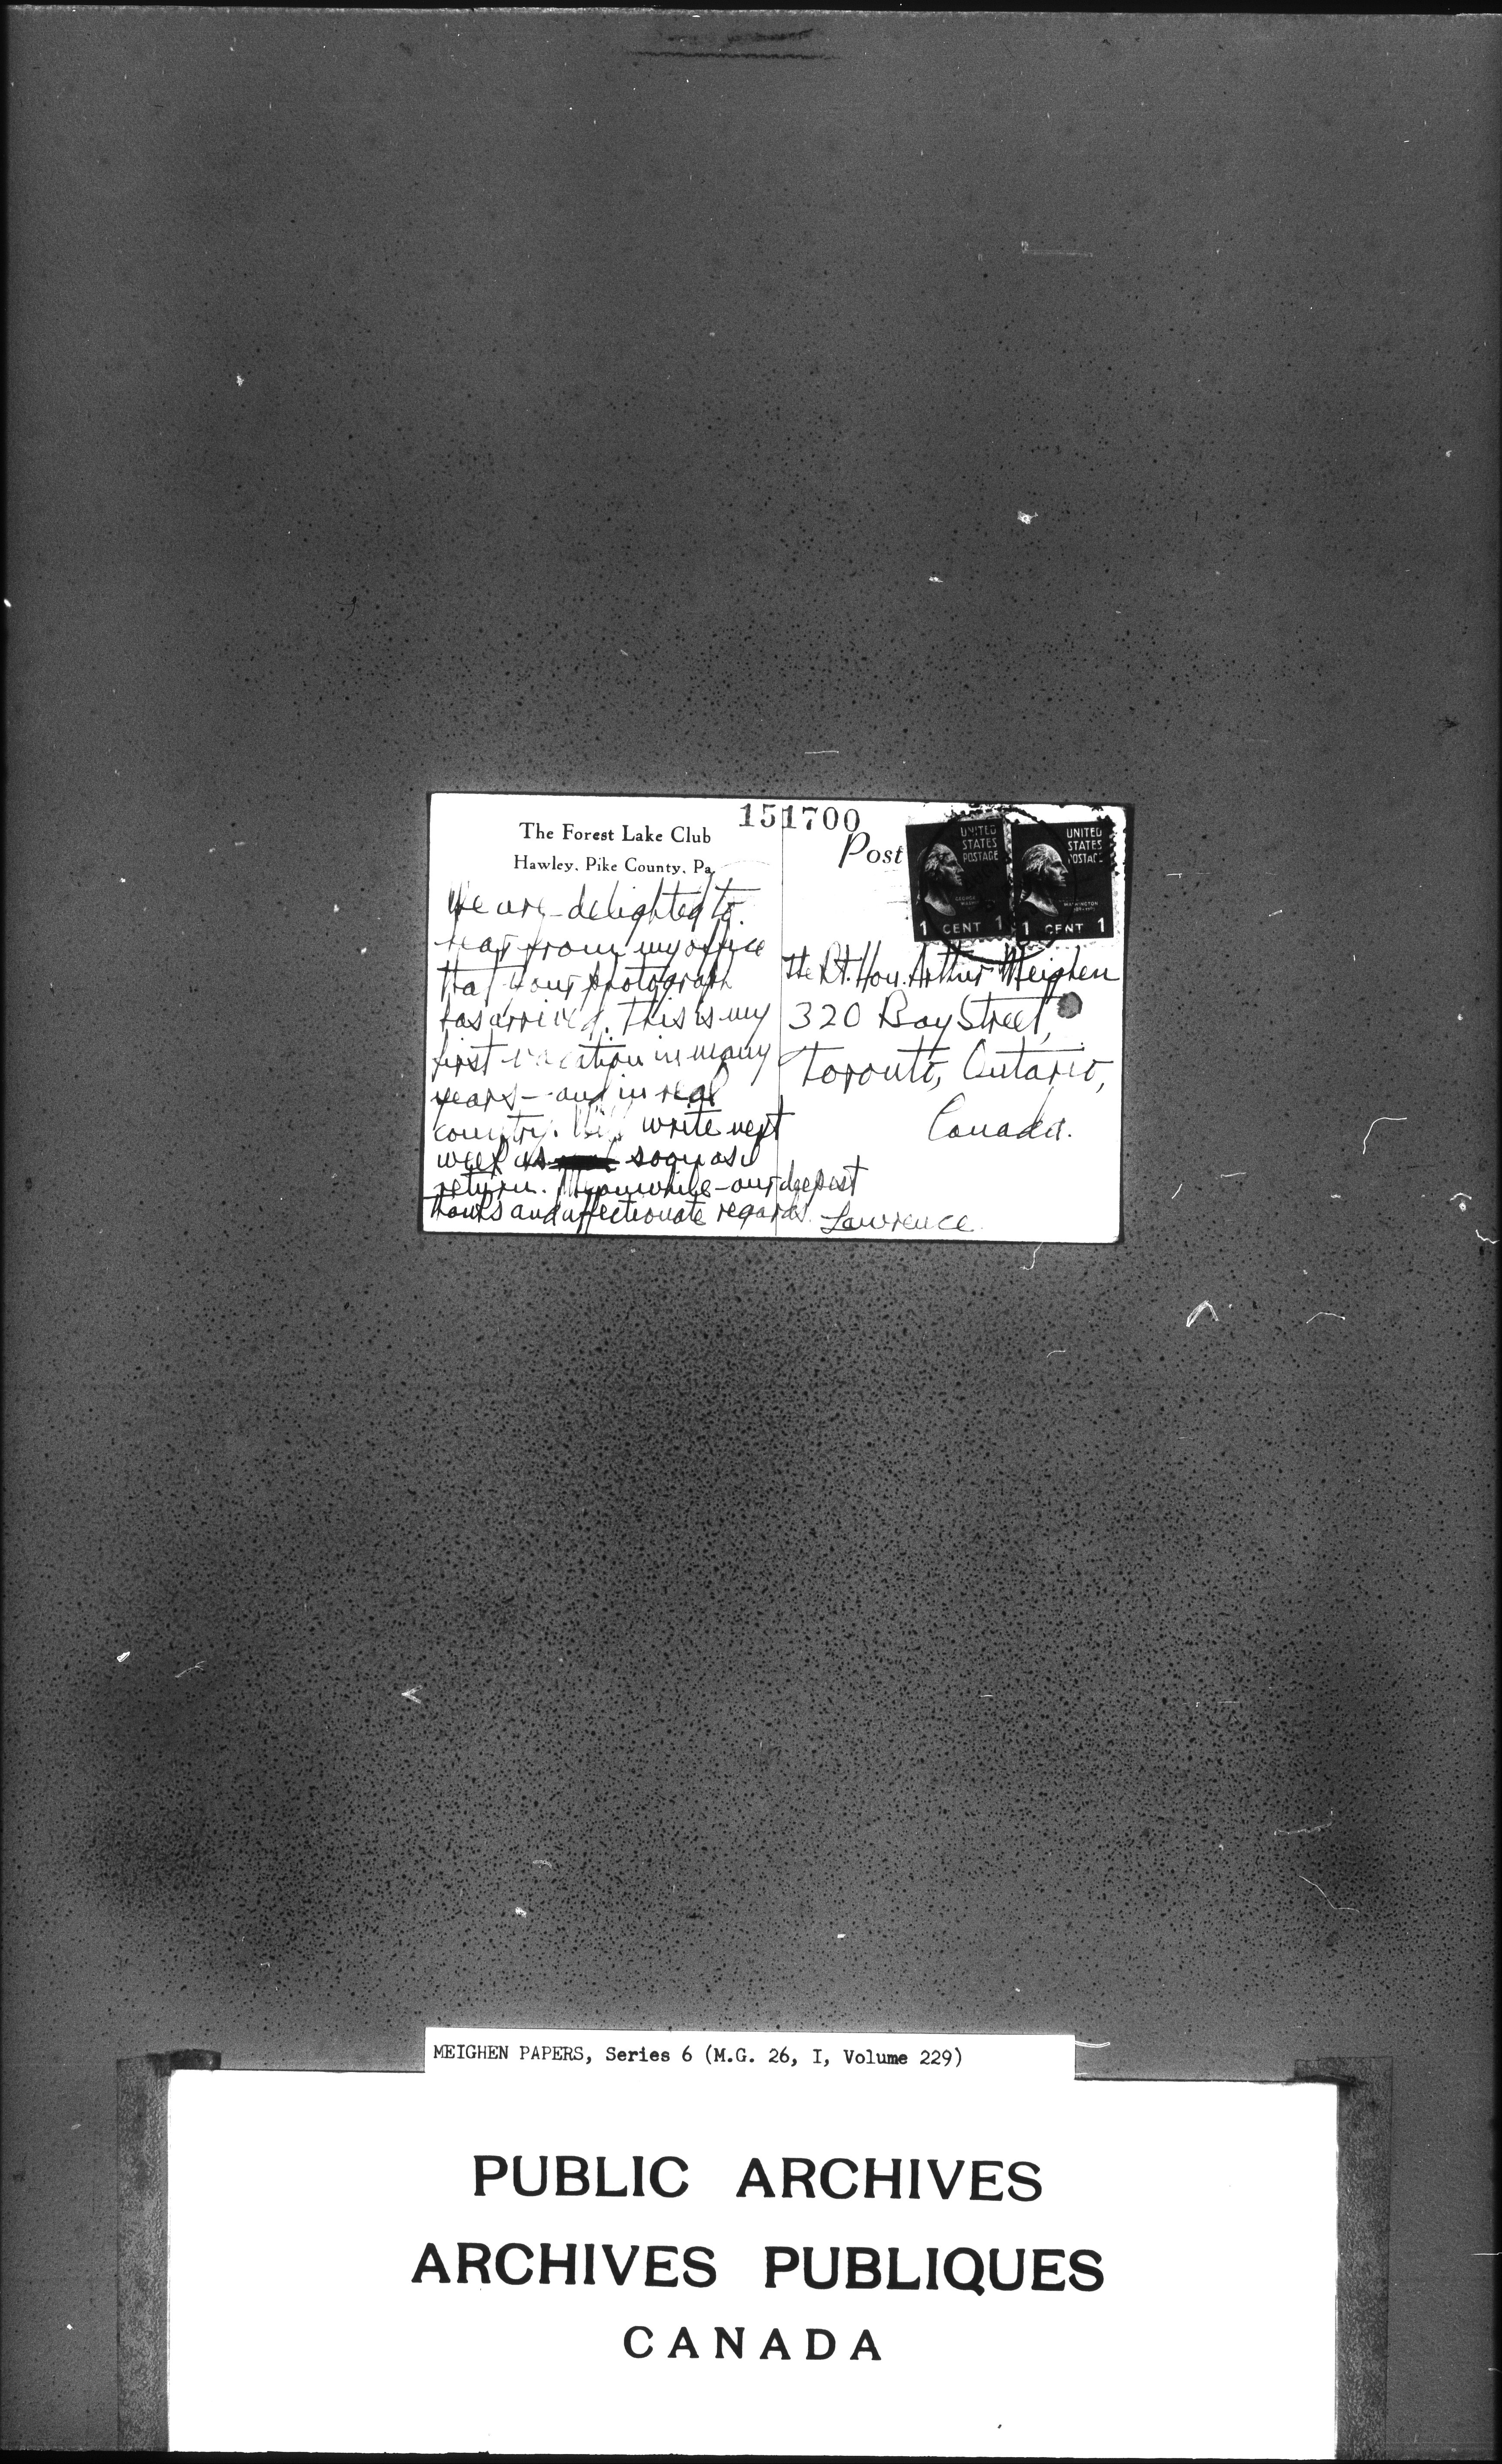 151700
The Forest Lake Club
Hawley, Pike County, Pa.
Post
UNITED STATES POSTAGE
1 CENT 1
UNITED STATES POSTAGE
WASHINGTON
1 CENT 1
We are delighted to
hear from my office
that your photograph
has arrived. This is my
first vacation in many
years - and in real
country. Will write next
week as soon as I
return. Meanwhile - our deepest
thanks and affectionate regards. Lawrence.
The Rt. Hon. Arthur Meighen
320 Bay Street,
Toronto, Ontario,
Canada.
MEIGHEN PAPERS, Series 6 (M.G. 26, I, Volume 229)
PUBLIC ARCHIVES
ARCHIVES PUBLIQUES
CANADA